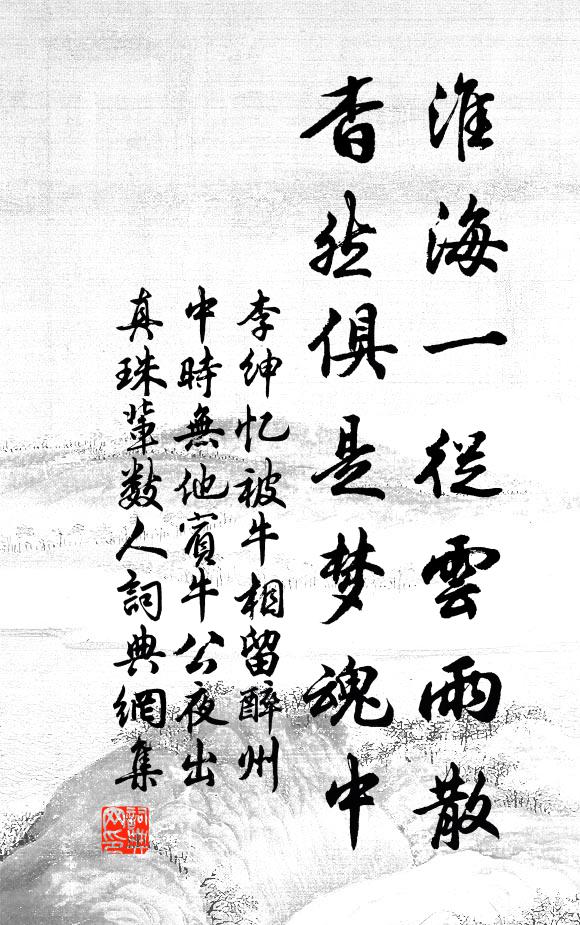 淮海一從雲雨散
杳然俱是梦魂中
李紳忆被牛相留醉州
中時無他賓牛公夜出
真珠輩数人詞典網集